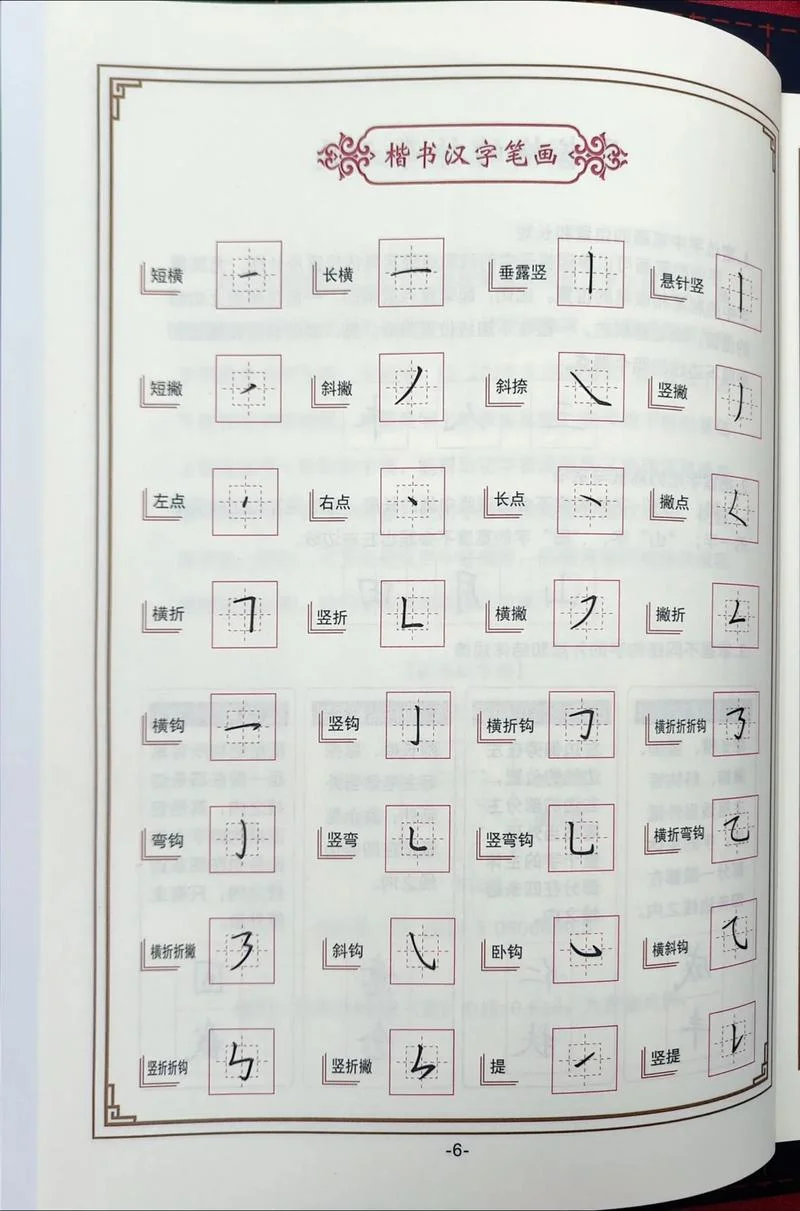 楷书汉字笔画
短横 ㇐ 长横 ㇐ 垂露竖 丨 悬针竖 丨
短撇 ㇒ 斜撇 ㇓ 斜捺 ㇏ 竖撇 ㇓
左点 ㇔ 右点 ㇔ 长点 ㇔ 撇点 ㇛
横折 ㇕ 竖折 ㇗ 横撇 ㇇ 撇折 ㇜
横钩 ㇖ 竖钩 ㇚ 横折钩 ㇆ 横折折折钩 ㇡
弯钩 ㇁ 竖弯 ㇄ 竖弯钩 ㇟ 横折弯钩 ㇈
横折折撇 ㇋ 斜钩 ㇂ 卧钩 ㇃ 横斜钩 ⺄
竖折折钩 ㇉ 竖折撇 ㇞ 提 ㇀ 竖提 ㇙
-6-